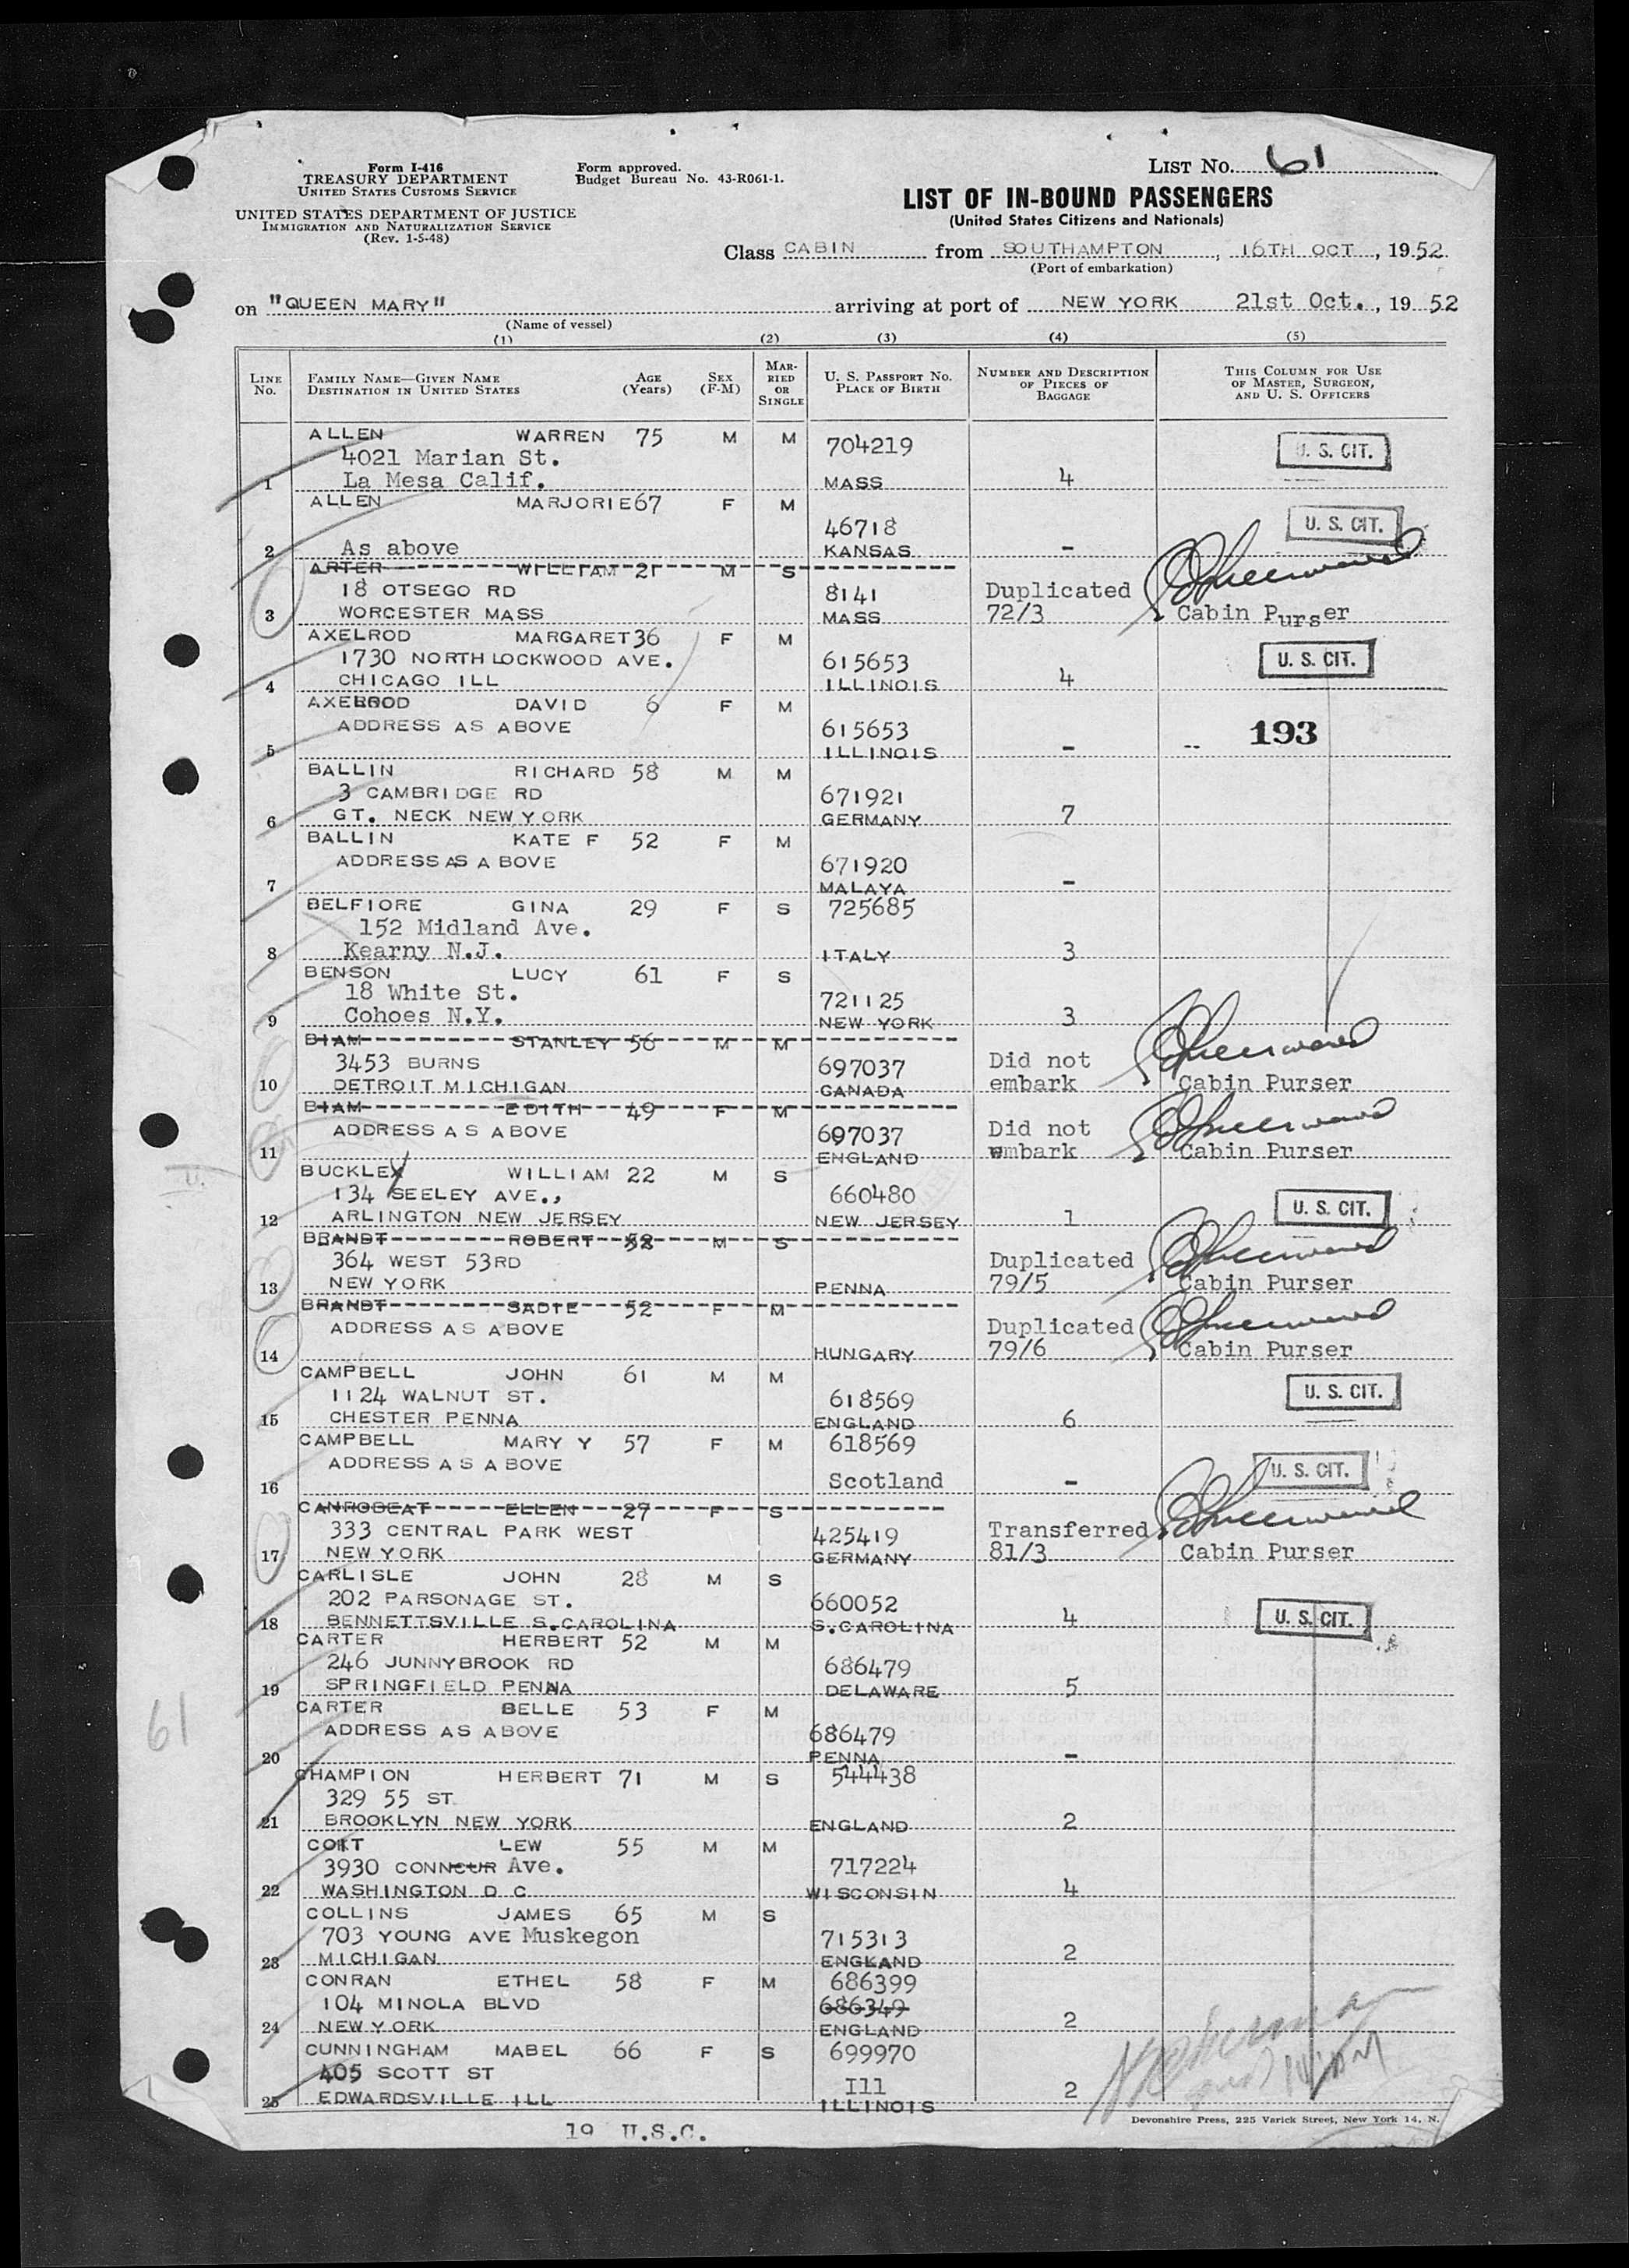 Form I-416
TREASURY DEPARTMENT
UNITED STATES CUSTOMS SERVICE
UNITED STATES DEPARTMENT OF JUSTICE
IMMIGRATION AND NATURALIZATION SERVICE
(Rev. 1-5-48)
Form approved.
Budget Bureau No. 43-R061-1.
LIST No. 61
LIST OF IN-BOUND PASSENGERS
(United States Citizens and Nationals)
Class CABIN from SOUTHAMPTON, 16TH OCT, 1952
(Port of embarkation)
on "QUEEN MARY" arriving at port of NEW YORK 21st Oct., 1952
(Name of vessel)
(1) (2) (3) (4) (5)
LINE No.
FAMILY NAME—GIVEN NAME
DESTINATION IN UNITED STATES
AGE (Years)
SEX (F-M)
MARRIED OR SINGLE
U. S. PASSPORT No.
PLACE OF BIRTH
NUMBER AND DESCRIPTION OF PIECES OF BAGGAGE
THIS COLUMN FOR USE OF MASTER, SURGEON, AND U. S. OFFICERS
ALLEN WARREN 75 M M 704219 U. S. CIT.
4021 Marian St.
1 La Mesa Calif. MASS 4
ALLEN MARJORIE 67 F M 46718 U. S. CIT.
2 As above KANSAS -
ARTER WILLIAM 21 M S
18 OTSEGO RD 8141 Duplicated
3 WORCESTER MASS MASS 72/3 Cabin Purser
AXELROD MARGARET 36 F M
1730 NORTH LOCKWOOD AVE. 615653 U. S. CIT.
4 CHICAGO ILL ILLINOIS 4
AXELROD DAVID 6 F M
ADDRESS AS ABOVE 615653 193
5 ILLINOIS - --
BALLIN RICHARD 58 M M
3 CAMBRIDGE RD 671921
6 GT. NECK NEW YORK GERMANY 7
BALLIN KATE F 52 F M
ADDRESS AS ABOVE 671920
7 MALAYA -
BELFIORE GINA 29 F S 725685
152 Midland Ave.
8 Kearny N.J. ITALY 3
BENSON LUCY 61 F S
18 White St. 721125
9 Cohoes N.Y. NEW YORK 3
BIAM STANLEY 56 M M
3453 BURNS 697037 Did not
10 DETROIT MICHIGAN CANADA embark Cabin Purser
BIAM EDITH 49 F M
ADDRESS AS ABOVE 697037 Did not
11 ENGLAND embark Cabin Purser
BUCKLEY WILLIAM 22 M S
134 SEELEY AVE., 660480 U. S. CIT.
12 ARLINGTON NEW JERSEY NEW JERSEY 1
BRANDT ROBERT 52 M S
364 WEST 53RD Duplicated
13 NEW YORK PENNA 79/5 Cabin Purser
BRANDT SADIE 52 F M
ADDRESS AS ABOVE Duplicated
14 HUNGARY 79/6 Cabin Purser
CAMPBELL JOHN 61 M M
1124 WALNUT ST. 618569 U. S. CIT.
15 CHESTER PENNA ENGLAND 6
CAMPBELL MARY Y 57 F M 618569
ADDRESS AS ABOVE U. S. CIT.
16 Scotland -
CANROBEAT ELLEN 27 F S
333 CENTRAL PARK WEST 425419 Transferred
17 NEW YORK GERMANY 81/3 Cabin Purser
CARLISLE JOHN 28 M S
202 PARSONAGE ST. 660052
18 BENNETTSVILLE S.CAROLINA S.CAROLINA 4 U. S. CIT.
CARTER HERBERT 52 M M
246 JUNNYBROOK RD 686479
19 SPRINGFIELD PENNA DELAWARE 5
CARTER BELLE 53 F M
ADDRESS AS ABOVE 686479
20 PENNA -
61
CHAMPION HERBERT 71 M S 544438
329 55 ST
21 BROOKLYN NEW YORK ENGLAND 2
LEW 55 M M
3930 Ave. 717224
22 WASHINGTON D C WISCONSIN 4
COLLINS JAMES 65 M S
703 YOUNG AVE Muskegon 715313
23 MICHIGAN ENGLAND 2
CONRAN ETHEL 58 F M 686399
104 MINOLA BLVD 686349
24 NEW YORK ENGLAND 2
CUNNINGHAM MABEL 66 F S 699970
405 SCOTT ST Ill
25 EDWARDSVILLE ILL ILLINOIS 2
Devonshire Press, 225 Varick Street, New York 14, N.
19 U.S.C.